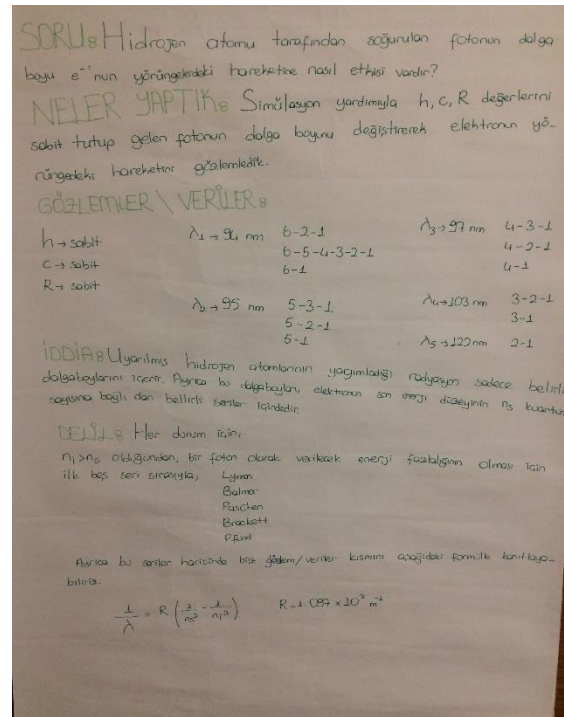 SORU: Hidrojen atomu tarafından soğurulan fotonun dalga
boyu e⁻'nun yörüngelerdeki hareketine nasıl etkisi vardır?
NELER YAPTIK: Simülasyon yardımıyla h, c, R değerlerini
sabit tutup gelen fotonun dalga boyunu değiştirerek elektronun yö-
rüngedeki hareketini gözlemledik.
GÖZLEMLER \ VERİLER:
h → sabit
c → sabit
R → sabit
λ1 → 94 nm 6-2-1
6-5-4-3-2-1
6-1
λ2 → 95 nm 5-3-1
5-2-1
5-1
λ3 → 97 nm 4-3-1
4-2-1
4-1
λ4 → 103 nm 3-2-1
3-1
λ5 → 122 nm 2-1
İDDİA: Uyarılmış hidrojen atomlarının yayımladığı radyasyon sadece belirli
dalgaboylarını içerir. Ayrıca bu dalgaboyları, elektronun son enerji düzeyinin ns kuantum
sayısına bağlı olan belirli seriler içindedir.
DELİL: Her durum için;
ni>ns olduğundan, bir foton olarak verilecek enerji fazlalığının olması için
ilk beş seri sırasıyla; Lyman
Balmer
Paschen
Brackett
Pfund
Ayrıca bu seriler haricinde bize gözlem/veriler kısmını aşağıdaki formülle kanıtlaya-
biliriz.
1/λ = R (1/ns² - 1/ni²) R=1.097 × 10⁷ m⁻¹